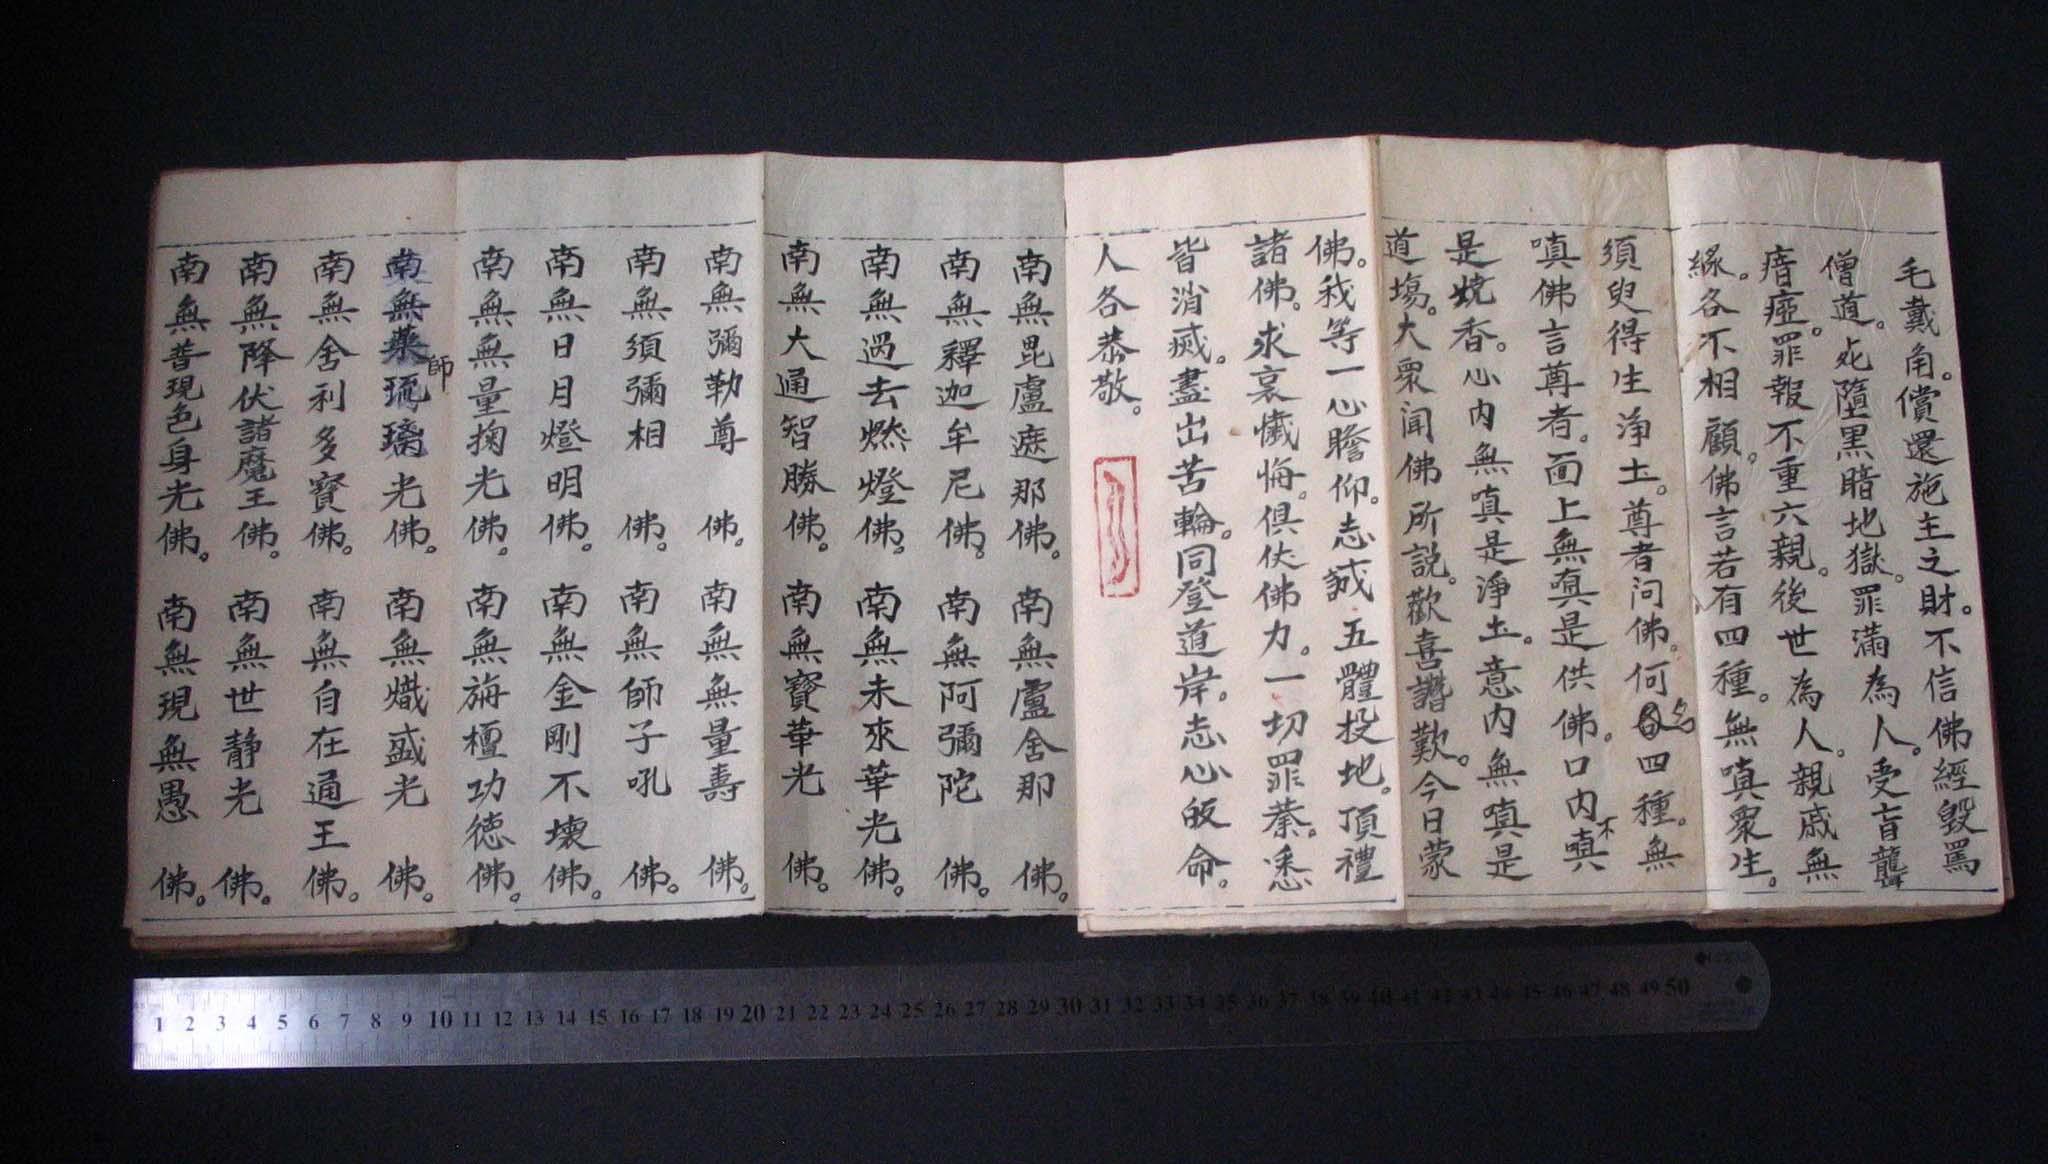 毛戴角。償還施主之財。不信佛經毀罵
僧道。死墮黑暗地獄。罪滿為人。受盲聾
瘖瘂。罪報不重六親。後世為人。親戚無
緣。各不相顧。佛言若有四種。無嗔眾生。
須臾得生淨土。尊者问佛。何名四種。無
嗔佛言尊者。面上無嗔是供佛。口内不嗔
是燒香。心内無嗔是淨土。意内無嗔是
道塲。大眾闻佛所説。歡喜讚歎。今日蒙
佛。我等一心瞻仰。志誠五體投地。頂禮
諸佛。求哀懺悔。俱伏佛力。一切罪業。悉
皆消滅。盡出苦輪。同登道岸。志心皈命。
人各恭敬。
南無毘盧遮那佛。南無盧舍那佛。
南無釋迦牟尼佛。南無阿彌陀佛。
南無過去燃燈佛。南無未來華光佛。
南無大通智勝佛。南無寶華光佛。
南無彌勒尊佛。南無無量壽佛。
南無須彌相佛。南無師子吼佛。
南無日月燈明佛。南無金剛不壞佛。
南無無量掬光佛。南無旃檀功德佛。
南無藥師琉璃光佛。南無熾盛光佛。
南無舍利多寶佛。南無自在通王佛。
南無降伏諸魔王佛。南無世靜光佛。
南無普現色身光佛。南無現無愚佛。
1 2 3 4 5 6 7 8 9 10 11 12 13 14 15 16 17 18 19 20 21 22 23 24 25 26 27 28 29 30 31 32 33 34 35 36 37 38 39 40 41 42 43 44 45 46 47 48 49 50